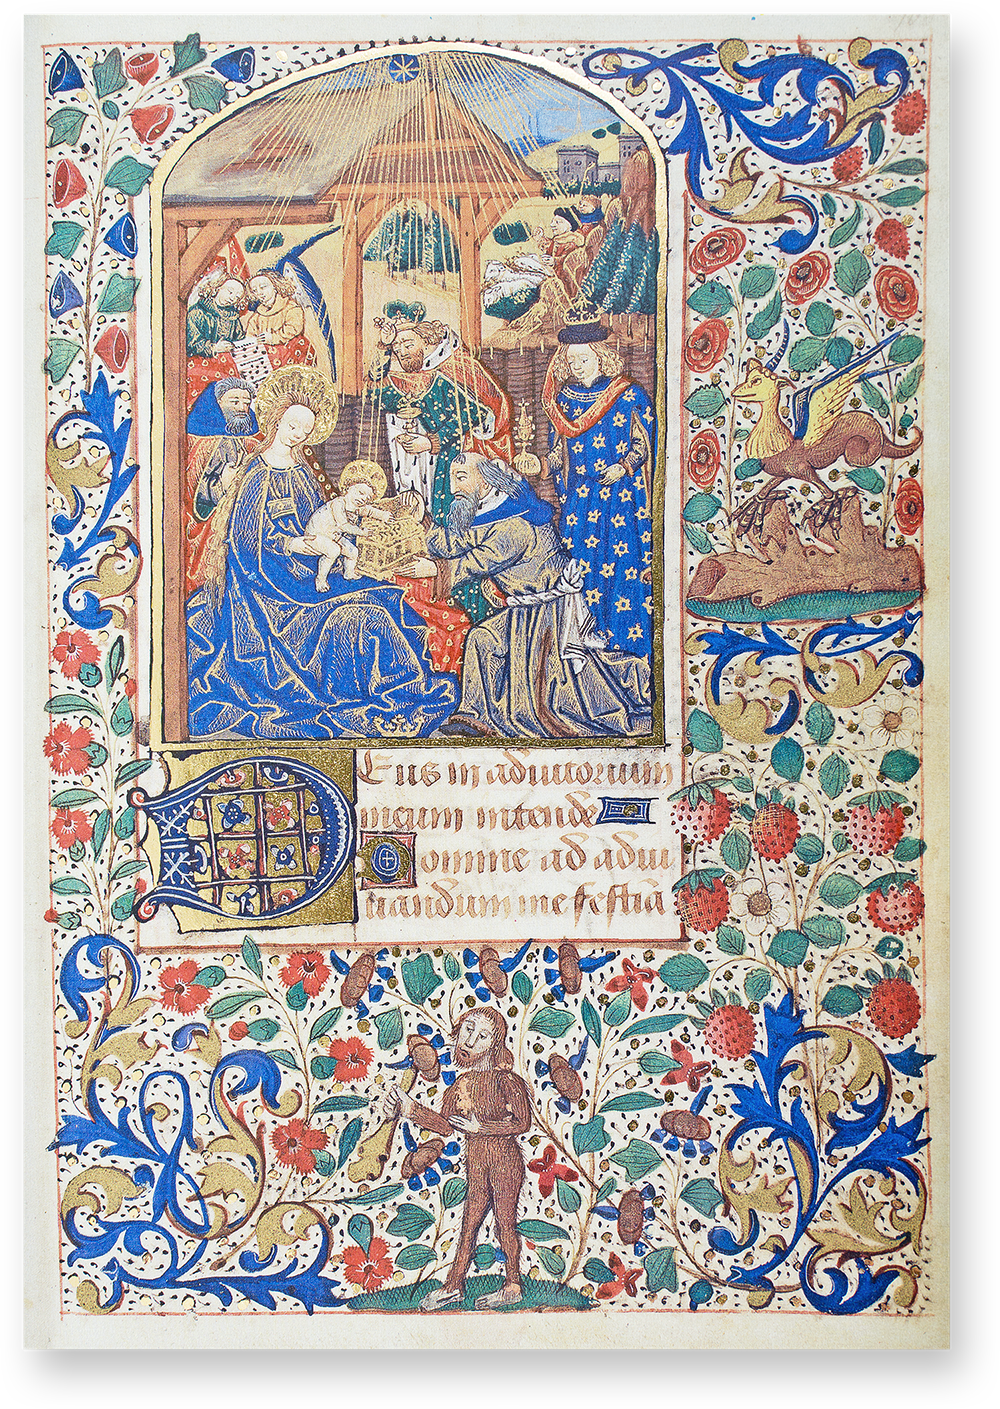 Deus in adiutorium
meum intende
Domine ad adiu
uandum me festina